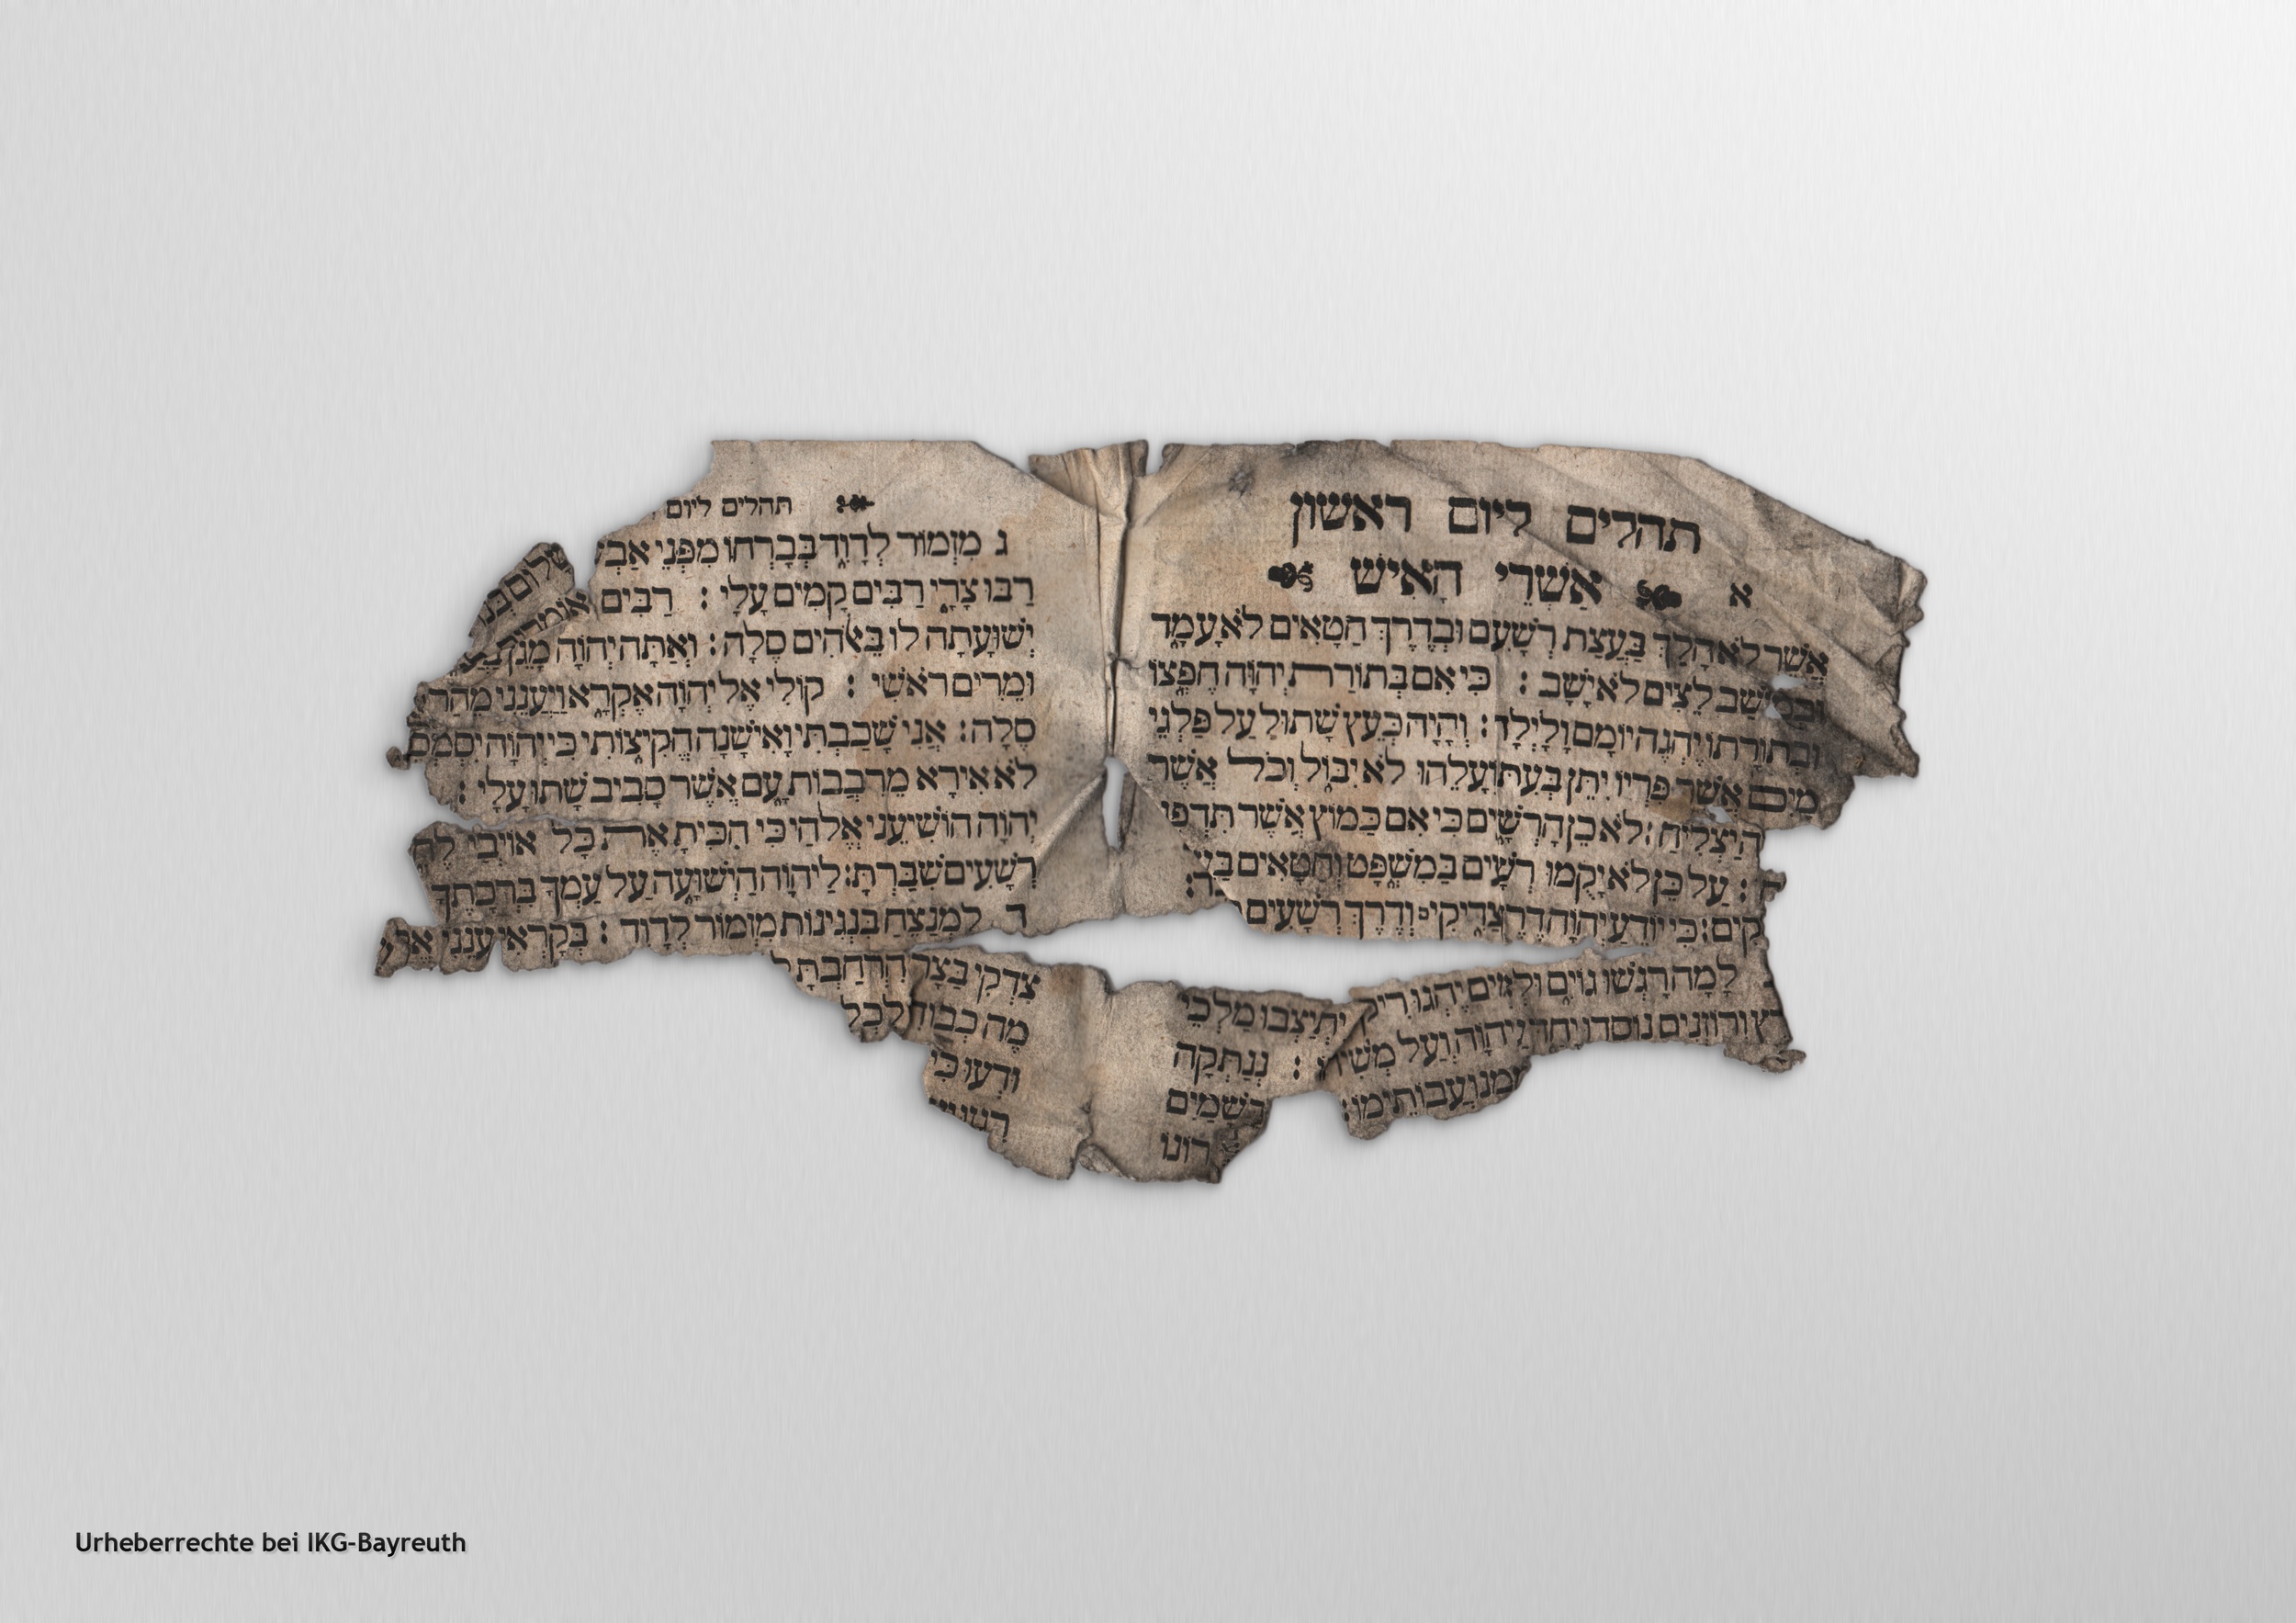 תהלים ליום ראשון
א אַשְׁרֵי הָאִישׁ
אֲשֶׁר לֹא הָלַךְ בַּעֲצַת רְשָׁעִם וּבְדֶרֶךְ חַטָאִים לֹא עָמָד
וּבְמוֹשַׁב לֵצִים לֹא יָשָׁב : כִּי אִם בְּתוֹרַת יְהוָֹה חֶפְצוֹ
וּבְתוֹרָתוֹ יֶהְגֶה יוֹמָם וָלָיְלָה : וְהָיָה כְּעֵץ שָׁתוּל עַל פַּלְגֵי
מָיִם אֲשֶׁר פִּרְיוֹ יִתֵּן בְּעִתּוֹ וְעָלֵהוּ לֹא יִבּוֹל וְכֹל אֲשֶׁר
יַצְלִיחַ : לֹא כֵן הָרְשָׁעִים כִּי אִם כַּמּוֹץ אֲשֶׁר תִּדְּפֶנּוּ
: עַל כֵּן לֹא יָקֻמוּ רְשָׁעִים בַּמִשְׁפָּט וְחַטָּאִים
קִים : כִּי יוֹדֵעַ יְהוָֹה דֶרֶךְ צַדִיקִי׳ וְדֶרֶךְ רְשָׁעִים
לָמָּה רָגְשׁוּ גוֹיִם וּלְאֻמִּים יֶהְגּוּ רִיק יִתְיַצְּבוּ מַלְכֵי
וְרוֹזְנִים נוֹסְדוּ יַחַד עַל יְהוָֹה וְעַל מְשִׁיחוֹ : נְנַתְּקָה
עֲבוֹתֵימוֹ :
שָׁמַיִם
רוֹנוֹ
תהלים ליום
ג מִזְמוֹר לְדָוִד בְּבָרְחוֹ מִפְּנֵי אַבְשָׁלוֹם בְּנוֹ
רַבּוּ צָרָי רַבִּים קָמִים עָלָי : רַבִּים אוֹמְרִים
יְשׁוּעָתָה לוֹ בֵּאלֹהִים סֶלָה : וְאַתָּה יְהוָֹה מָגֵן בַּעֲדִי
וּמֵרִים רֹאשִׁי : קוֹלִי אֶל יְהוָֹה אֶקְרָא וַיַּעֲנֵנִי מֵהַר
סֶלָה : אֲנִי שָׁכַבְתִּי וָאִישָׁנָה הֱקִיצוֹתִי כִּי יְהוָֹה יִסְמְכֵ
לֹא אִירָא מֵרִבְבוֹת עָם אֲשֶׁר סָבִיב שָׁתוּ עָלָי :
יְהוָֹה הוֹשִׁיעֵנִי אֱלֹהַי כִּי הִכִּיתָ אֶת כָּל אוֹיְבַי לֶחִ
רְשָׁעִים שִׁבַּרְתָּ : לַיהוָֹה הַיְשׁוּעָה עַל עַמְּךָ בִרְכָתֶךָ
ד לַמְנַצֵּחַ בִּנְגִינוֹת מִזְמוֹר לְדָוִד : בְּקָרְאִי עֲנֵנִי אֱלֹ
צִדְקִי בַּצָּר הִרְחַבְתָּ
מֶה כְבוֹדִי לִכְלִ
וּדְעוּ כִּי